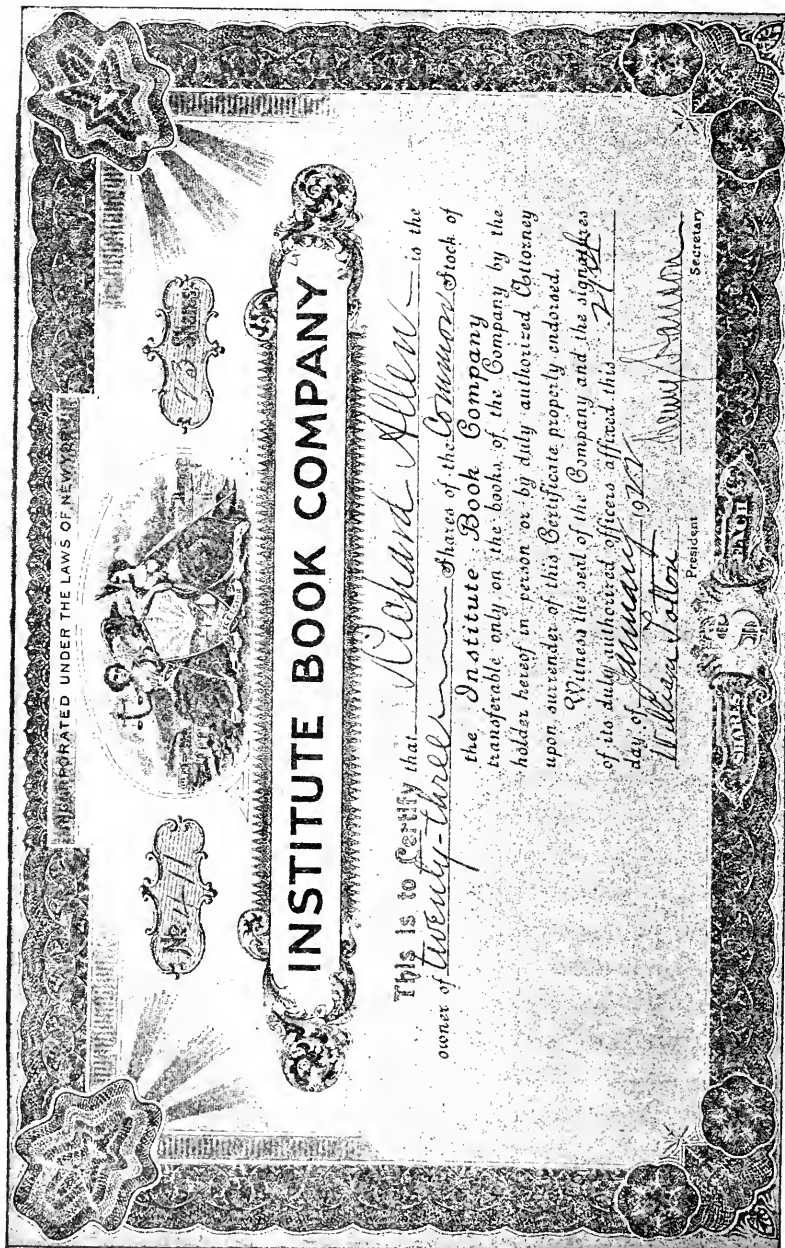 INCORPORATED UNDER THE LAWS OF NEW YORK
No 411
23 Shares
INSTITUTE BOOK COMPANY
This is to Certify that Richard Allen is the
owner of twenty-three Shares of the Common Stock of
the Institute Book Company
transferable only on the books of the Company by the
holder hereof in person or by duly authorized Attorney
upon surrender of this Certificate properly endorsed.
Witness the seal of the Company and the signatures
of its duly authorized officers affixed this
day of January 19
William Patton
President
Secretary
SHARES
$
EACH